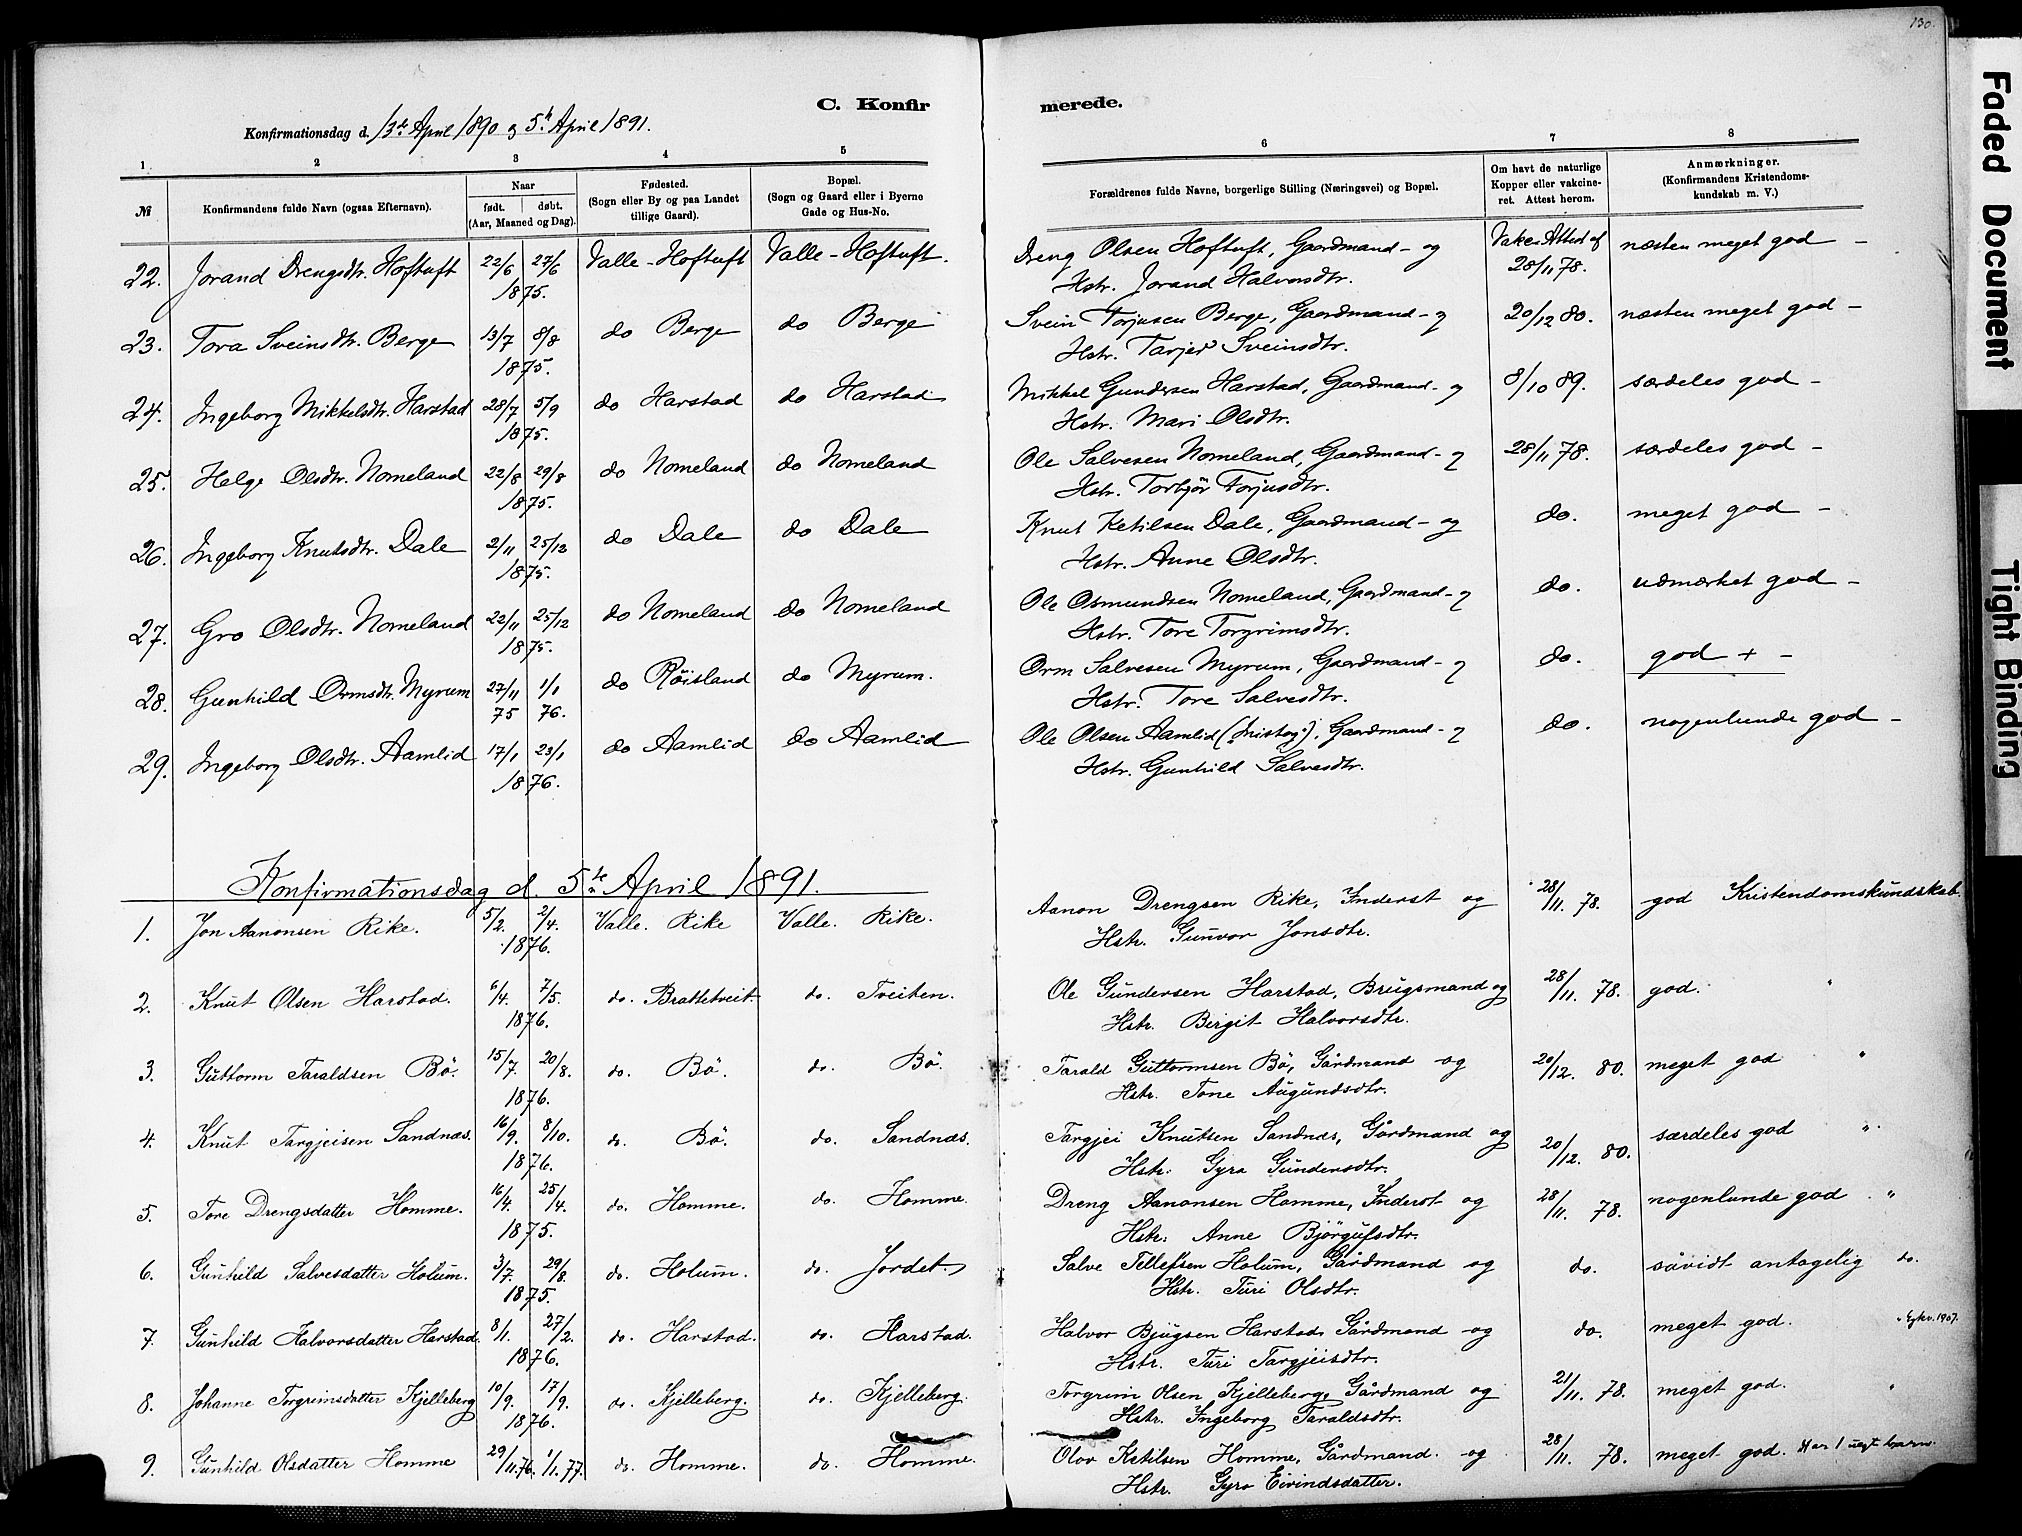 130.
C. Konfirmerede.
Konfirmationsdag d. 13de April 1890 og 5te April 1891.
1. 2 3 4 5 6 7 8
№ Konfirmandens fulde Navn (ogsaa Efternavn). Naar født. døbt. (Aar, Maaned og Dag). Fødested. (Sogn eller By og paa Landet tillige Gaard). Bopæl. (Sogn og Gaard eller i Byerne Gade og Hus-No. Forældrenes fulde Navne, borgerlige Stilling (Næringsvei) og Bopæl. Om havt de naturlige Kopper eller vakcineret. Attest herom. Anmærkninger. (Konfirmandens Kristendomskundskab m. V.)
22. Jorand Drengsdtr. Hoftuft 22/6 27/6 1875. Valle-Hoftuft Valle-Hoftuft. Dreng Olsen Hoftuft, Gaardmand- og Vakc. Attest af næsten meget god -
Hstr. Jorand Halvorsdtr. 28/11 78.
23. Tora Sveinsdtr. Berge 13/7 8/8 1875. do Berge do Berge Svein Torjusen Berge, Gaardmand- og 20/12 80. næsten meget god -
Hstr. Tarjer Sveinsdtr.
24. Ingeborg Mikkelsdtr. Harstad 28/7 5/9 1875. do Harstad do Harstad Mikkel Gundersen Harstad, Gaardmand- og 8/10 89. særdeles god -
Hstr. Mari Olsdtr.
25. Helge Olsdtr. Nomeland 22/8 29/8 1875. do Nomeland do Nomeland Ole Salvesen Nomeland, Gaardmand- og 28/11 78. særdeles god -
Hstr. Torbjør Torjusdtr.
26. Ingeborg Knutsdtr. Dale 2/11 25/12 1875. do Dale do Dale Knut Ketilsen Dale, Gaardmand- og do. meget god -
Hstr. Anne Olsdtr.
27. Gro Olsdtr. Nomeland 22/11 25/12 1875. do Nomeland do Nomeland Ole Osmundsen Nomeland, Gaardmand- og do. udmærket god -
Hstr. Tore Torgrimsdtr.
28. Gunhild Ormsdtr. Myrum 27/11 75 1/1 76. do Røisland do Myrum. Orm Salvesen Myrum, Gaardmand- og do. god + -
Hstr. Tore Salvesdtr.
29. Ingeborg Olsdtr. Aamlid 17/1 23/1 1876. do Aamlid do Aamlid Ole Olsen Aamlid (Instog), Gaardmand- og do. nogenlunde god -
Hstr. Gunhild Salvesdtr.
Konfirmationsdag d. 5te April 1891.
1. Jon Aanonsen Rike. 5/2. 2/4. 1876. Valle. Rike Valle. Rike. Aanon Drengsen Rike, Inderst og 28/11. 78. god Kristendomskundskab.
Hstr. Gunvor Jonsdtr.
2. Knut Olsen Harstad. 6/4. 7/5. 1876. do. Brattetveit. do. Tveiten. Ole Gundersen Harstad, Brugsmand og 28/11. 78. god. "
Hstr. Birgit Halvorsdtr.
3. Guttorm Taraldsen Bö. 15/7. 20/8. 1876. do. Bö. do. Bö. Tarald Guttormsen Bö, Gårdmand og 20/12. 80. meget god "
Hstr. Tone Augundsdtr.
4. Knut Targjeisen Sandnæs. 16/9. 8/10. 1876. do. Bö. do. Sandnæs. Targjei Knutsen Sandnæs, Gårdmand og 20/12. 80. særdeles god "
Hstr. Gyro Gundersdtr.
5. Tore Drengsdatter Homme. 16/4. 25/4. 1875. do. Homme. do. Homme. Dreng Aanonsen Homme, Inderst og 28/11. 78. nogenlunde god. "
Hstr. Anne Björgufsdtr.
6. Gunhild Salvesdatter Holum. 3/7. 29/8. 1875. do. Holum. do. Jordet. Salve Tellefsen Holum, Gårdmand og do. såvidt antagelig do.
Hstr. Turi Olsdtr.
7. Gunhild Halvorsdatter Harstad. 8/1. 27/2. 1876. do. Harstad. do. Harstad. Halvor Bjugsen Harstad, Gårdmand og do. meget god. " 1907.
Hstr. Turi Targjeisdtr.
8. Johanne Torgrimsdatter Kjelleberg 10/9. 17/9. 1876. do. Kjelleberg. do. Kjelleberg. Torgrim Olsen Kjelleberg, Gårdmand og 21/11. 78. meget god. "
Hstr. Ingeborg Taraldsdtr.
9. Gunhild Olsdatter Homme 29/11. 76. 1/1. 77. do. Homme. do. Homme. Olov Ketilsen Homme, Gårdmand. og 28/11. 78. meget god. Har 1 uegt barn.
Hstr. Gyro Eivindsdatter.
Faded Document
Tight Binding